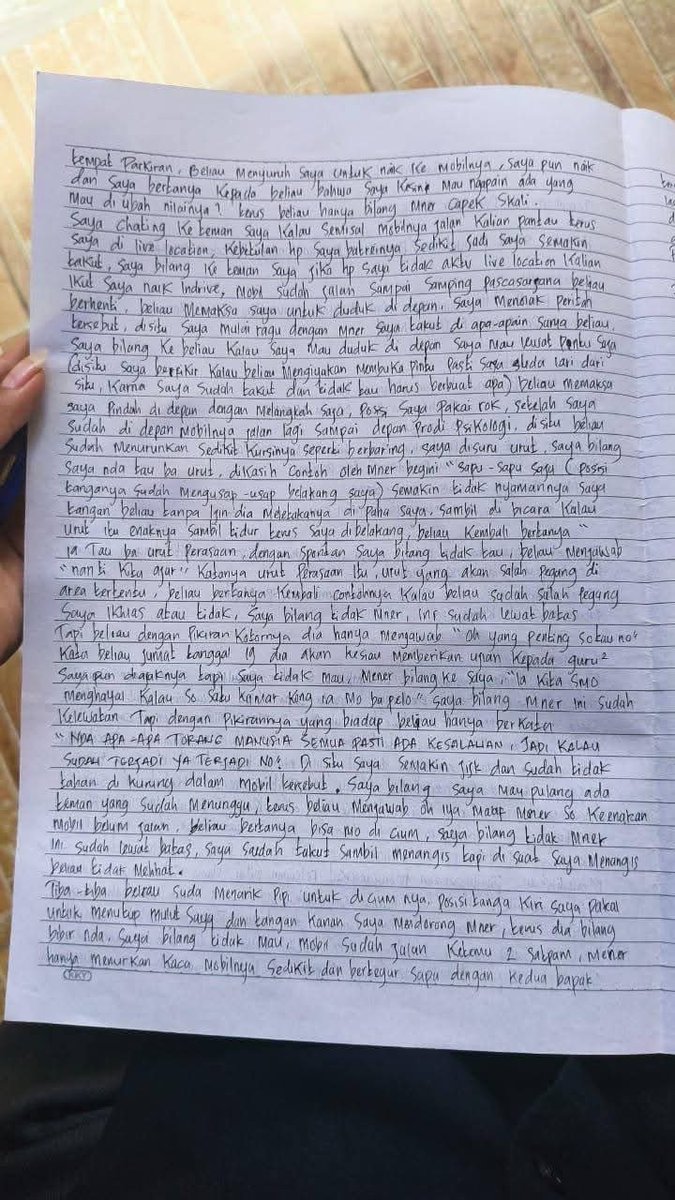 tempat Parkiran, Beliau Menyuruh Saya untuk naik Ke mobilnya, saya pun naik
dan Saya bertanya Kepada beliau bahwa Saya Kesne Mau ngapain ada yang
Mau di ubah nilainya? terus beliau hanya bilang Mner Capek Skali.
Saya chating Ke teman Saya Kalau Semisal Mobilnya jalan Kalian pantau terus
Saya di live location, Kebetulan hp Saya batreinya Sedikit Jadi Saya Semakin
takut, Saya bilang Ke teman Saya jika hp Saya tidak aktiv live location Kalian
Ikut Saya naik Indrive, Mobil Sudah jalan Sampai Samping Pascasarjana beliau
berhenti, beliau Memaksa saya untuk duduk di depan. Saya Menolak
tersebut, disitu Saya Mulai ragu dengan Mner Saya takut di apa-apain Sama beliau.
Saya bilang Ke beliau Kalau Saya Mau duduk di depan Saya Mau lewat Pintu Saja
(disitu Saya berfikir Kalau beliau Mengiyakan Membuka Pintu Pasti Saya Suda lari dari
situ, Karna Saya Sudah takut dan tidak tau harus berbuat apa) beliau memaksa
saya Pindah di depan dengan Melangkah Saja, Posisi Saya Pakai rok, setelah Saya
Sudah di depan Mobilnya jalan lagi Sampai depan Prodi Psikologi, disitu beliau
Sudah Menurunkan Sedikit Kursinya Seperti berbaring, saya disuru urut, Saya bilang
Saya nda tau ba urut, dikasih Contoh oleh Mner begini "Sapu-Sapu Sapu (Posisi
tanganya Sudah Mengusap-usap belakang saya) Semakin tidak nyamannya Saya
tangan beliau tanpa Izin dia Meletakanya di Paha Saya, Sambil di bicara Kalau
Urut itu enaknya Sambil tidur terus Saya dibelakang, beliau Kembali bertanya "
Tau ba urut Perasaan, dengan Spontan Saya bilang tidak tau, beliau Menjawab
"nanti Kita ajar" Katanya urut Perasaan Itu, urut yang akan Salah Pegang di
area tertentu, beliau bertanya Kembali Contohnya Kalau beliau Sudah Salah Pegang
Saya Ikhlas atau tidak, Saya bilang tidak Mner, ini Sudah lewat batas
Tapi beliau dengan Pikiran Kotornya dia hanya Menjawab "oh yang Penting So tau no"
Kata beliau jumat tanggal 19 dia akan Memberikan ujian Kepada guru²
Saya pun diajaknya tapi Saya tidak mau, Mener bilang Ke Saya, "Ia Kita So Mo
menghayal Kalau So Satu Kamar Kong ta Mo ba pelo" Saya bilang Mner ini Sudah
Kelewatan Tapi dengan Pikirannya yang biadap beliau hanya berkata
"NDA APA-APA TORANG MANUSIA SEMUA PASTI ADA KESALAHAN, JADI KALAU
SUDAH TERJADI YA TERJADI NO". Di situ Saya Semakin jijik dan Sudah tidak
tahan di Kurung dalam mobil tersebut. Saya bilang Saya Mau pulang ada
teman yang Sudah Menunggu, terus beliau Menjawab oh iya. Maaf Mener So Keenakan
Mobil belum jalan, beliau bertanya bisa mo di cium, saya bilang tidak Mner
Ini Sudah lewat batas, Saya Sudah takut Sambil menangis tapi di saat Saya Menangis
beliau tidak Melihat.
Tiba-tiba beliau suda Menarik Pipi untuk di ciumnya, Posisi tanga Kiri Saya Pakai
untuk menutup Mulut Saya dan tangan Kanan Saya Mendorong Mner, terus dia bilang
bibir nda, Saya bilang tidak Mau, Mobil Sudah jalan Ketemu 2 Satpam, Mener
hanya menurkan Kaca Mobilnya Sedikit dan bertegur Sapa dengan Kedua bapak
KKY